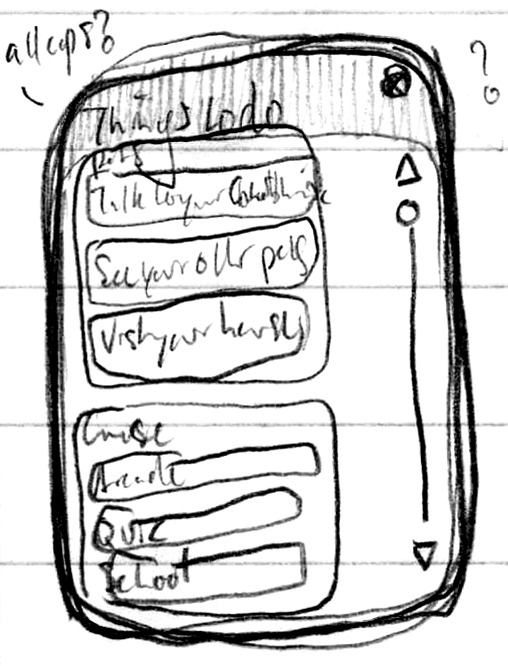 all caps?
?
Things to do
Pets
Talk to your
See your other pets
Visit your
Arcade
Quiz
School